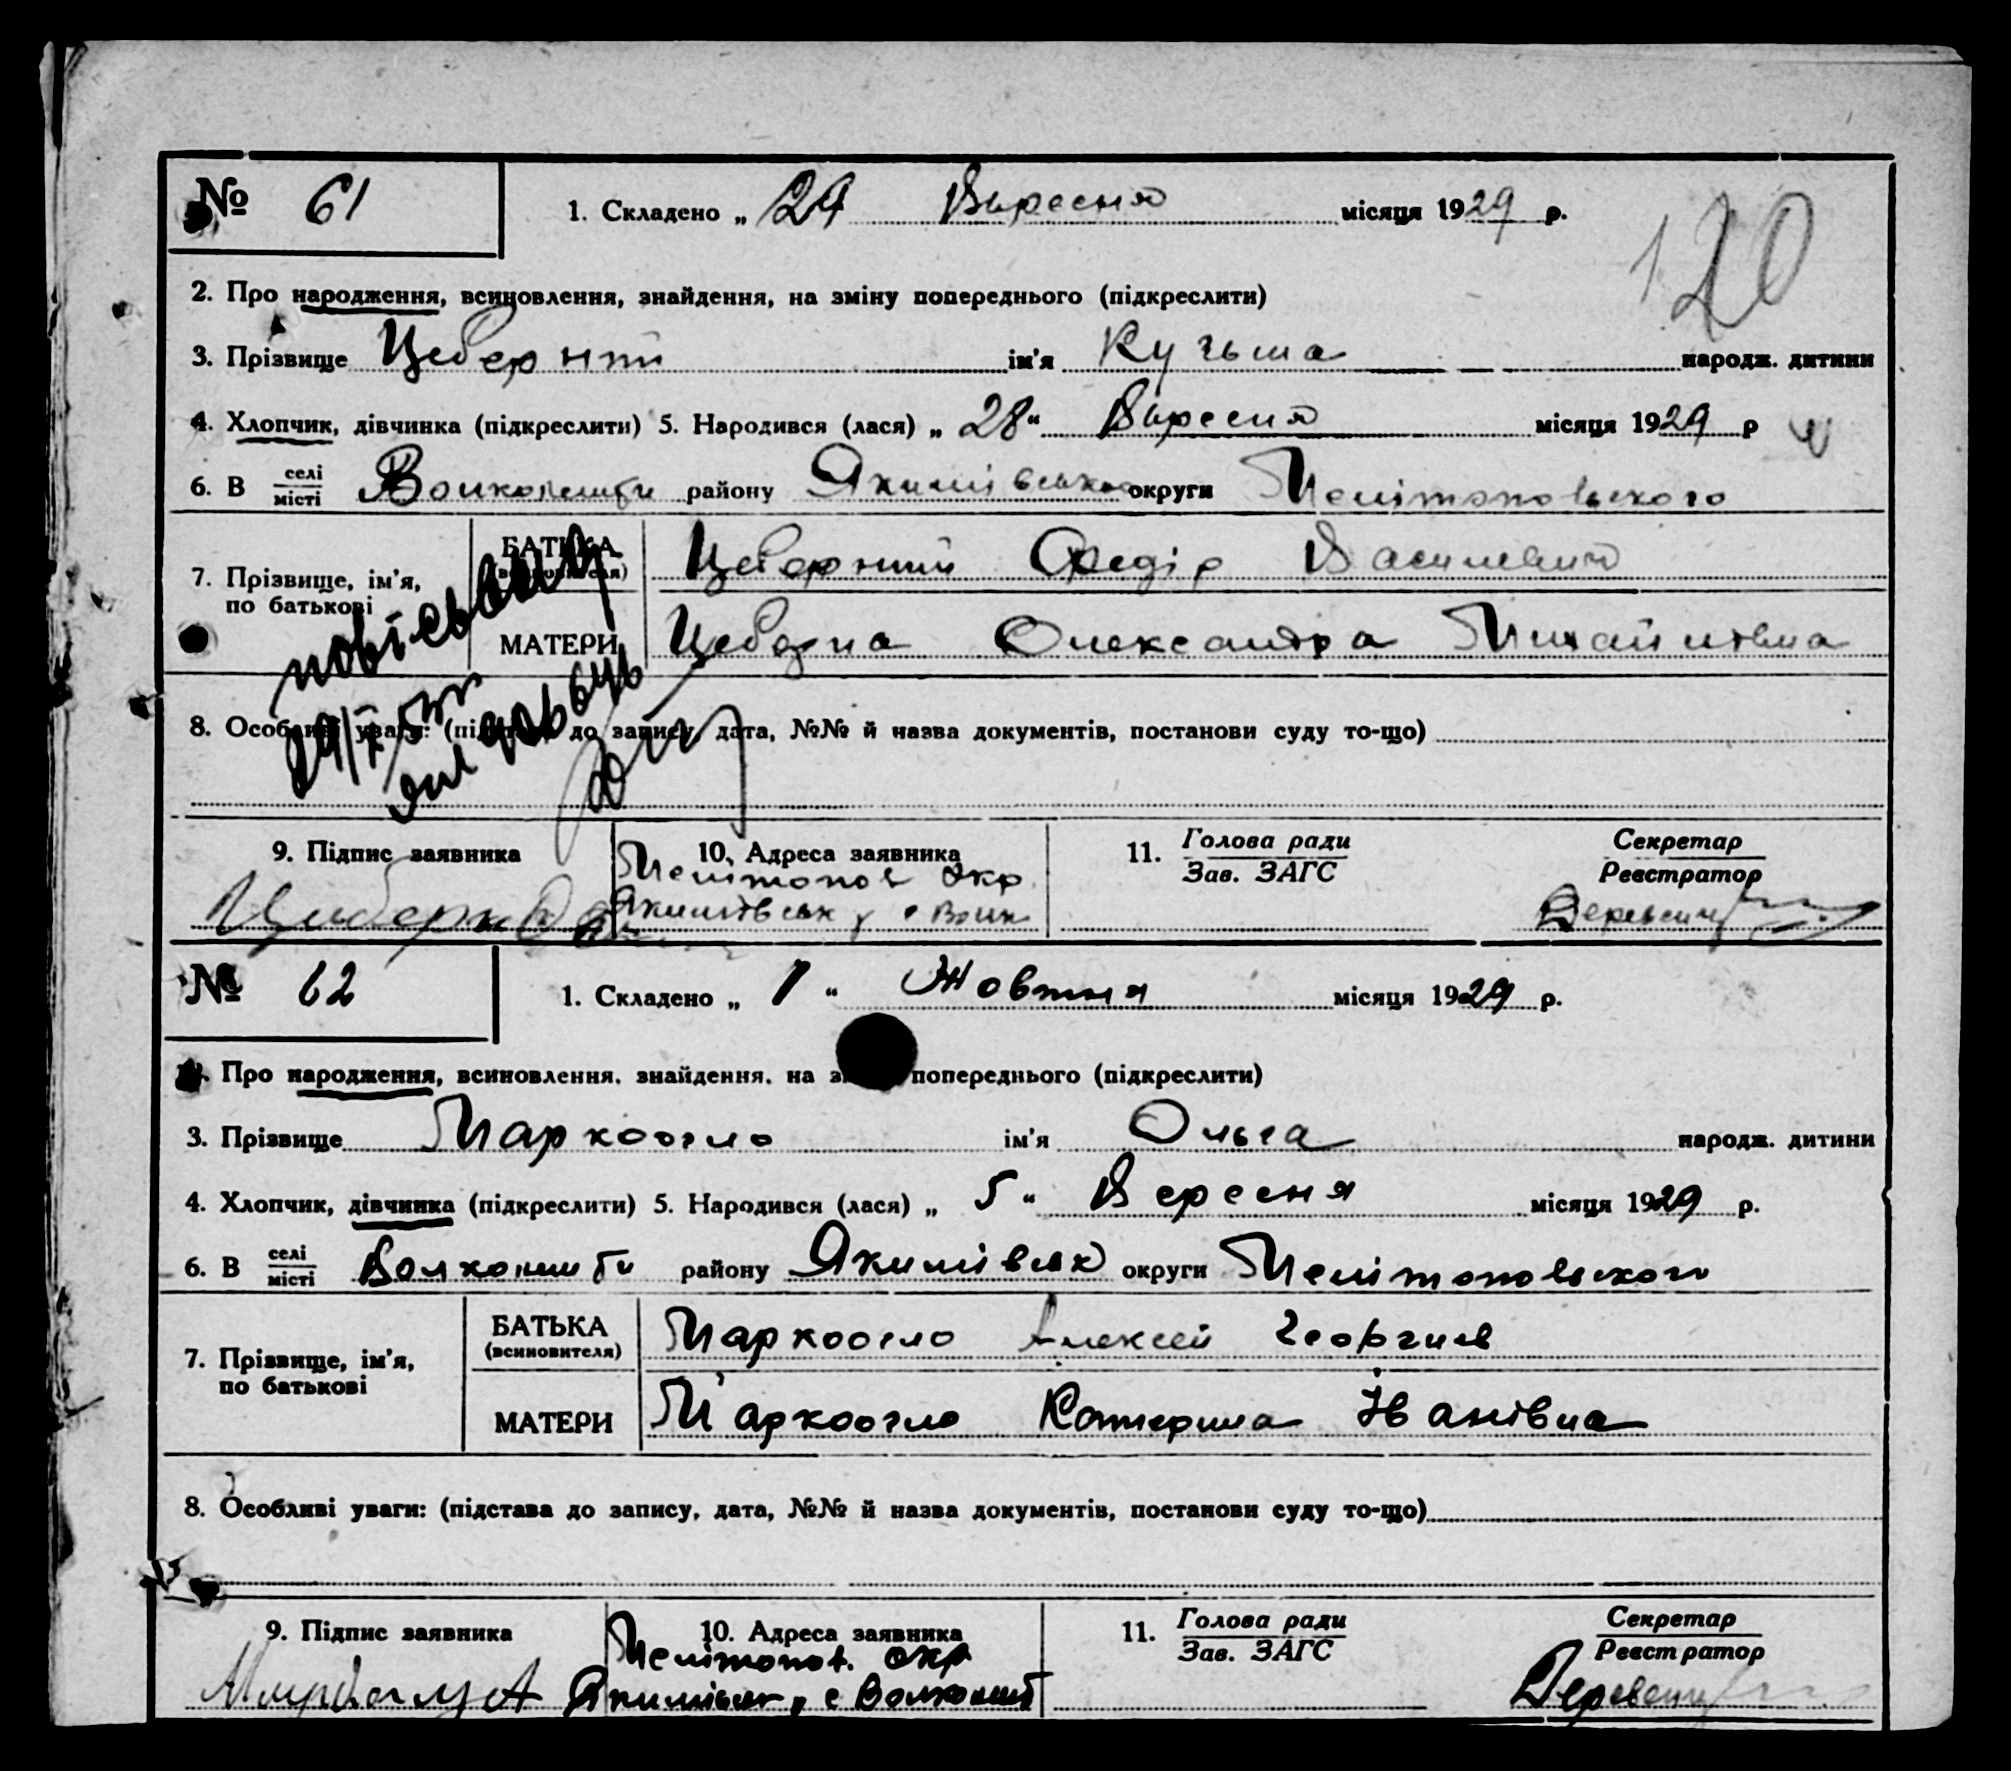 № 61 1. Складено „ 29 Вересня місяця 1929 р.
120
2. Про народження, всиновлення, знайдення, на зміну попереднього (підкреслити)
3. Прізвище ім'я Кузьма народж. дитини
4. Хлопчик, дівчинка (підкреслити) 5. Народився (лася) „ 28 “ Вересня місяця 1929 р
6. В селі/місті району Якимівського округи Мелітопольского
7. Прізвище, ім'я, по батькові
БАТЬКА Цеберний Федір Василевич
МАТЕРИ Цеберна Олександра Михайлівна
8. Особливі уваги: (підстава до запису, дата, №№ й назва документів, постанови суду то-що)
9. Підпис заявника 10. Адреса заявника 11. Голова ради/Зав. ЗАГС Секретар/Реєстратор
Мелітопол Окр
Якимівськ
№ 62 1. Складено „ 1 “ Жовтня місяця 1929 р.
Про народження, всиновлення, знайдення, на попереднього (підкреслити)
3. Прізвище Маркоогло ім'я Ольга народж. дитини
4. Хлопчик, дівчинка (підкреслити) 5. Народився (лася) „ 5 “ Вересня місяця 1929 р.
6. В селі/місті району Якимівськ округи Мелітопольского
7. Прізвище, ім'я, по батькові
БАТЬКА (всиновителя) Маркоогло Алексей Георгиев
МАТЕРИ Маркоогло Катерина Іванівна
8. Особливі уваги: (підстава до запису, дата, №№ й назва документів, постанови суду то-що)
9. Підпис заявника 10. Адреса заявника 11. Голова ради/Зав. ЗАГС Секретар/Реєстратор
Мелітопол. окр
Якимівськ